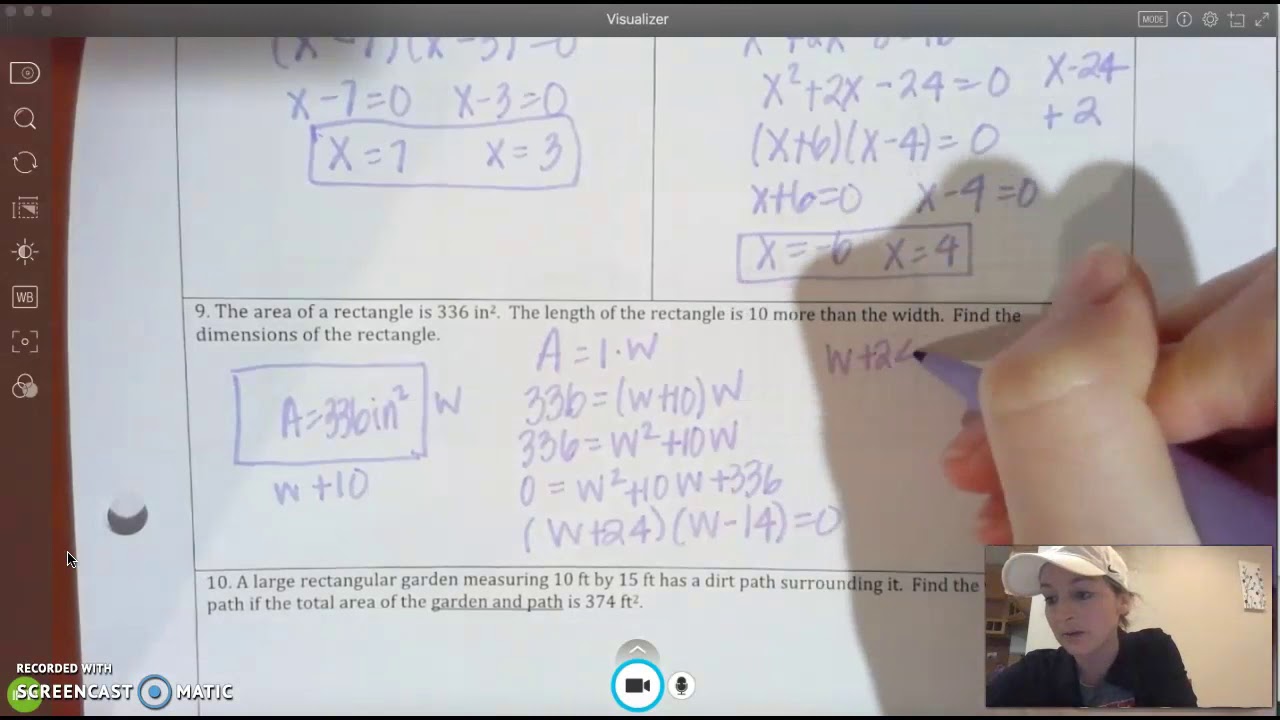 Visualizer
MODE
x-7=0 x-3=0
x=7 x=3
x²+2x-24=0
x-24
+2
(x+6)(x-4)=0
x+6=0 x-4=0
x=-6 x=4
9. The area of a rectangle is 336 in². The length of the rectangle is 10 more than the width. Find the
dimensions of the rectangle.
A=336in²
w
w+10
A=l·w
336=(w+10)w
336=w²+10w
0=w²+10w+336
(w+24)(w-14)=0
w+2
10. A large rectangular garden measuring 10 ft by 15 ft has a dirt path surrounding it. Find the
path if the total area of the garden and path is 374 ft².
WB
RECORDED WITH
SCREENCAST MATIC